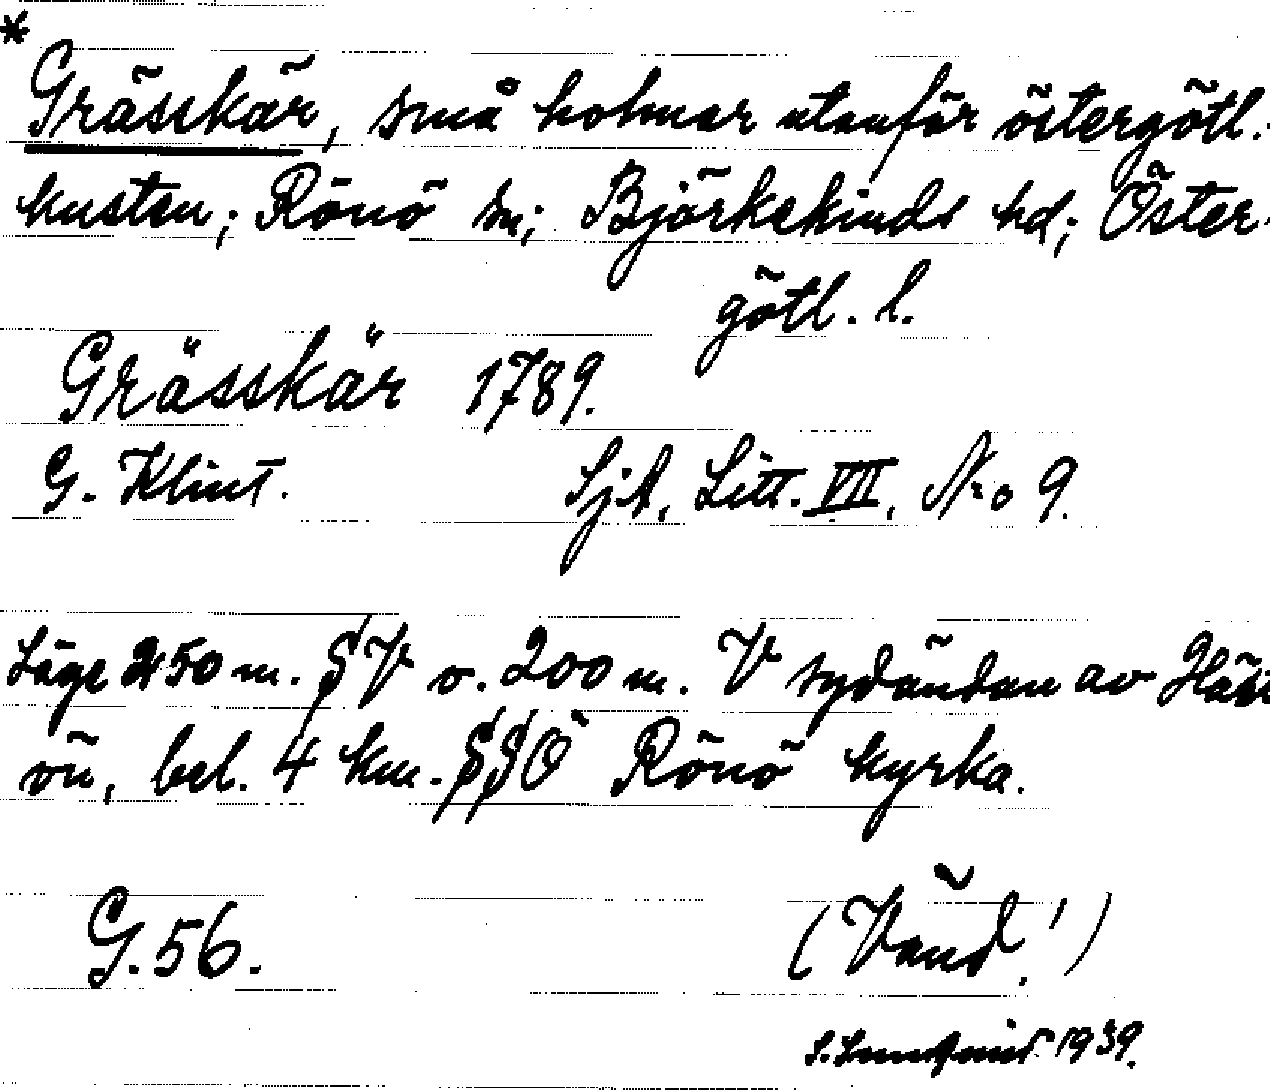 *
Grässkär, små holmar utanför östergötl.-
kusten; Rönö sn; Björkekinds hd; Öster-
götl. l.
Grässkär 1789.
G. Klint. Sjk. Litt. VII. No 9.
Läge 250 m. SV o. 200 m. V sydändan av Häst-
ön, bel. 4 km. SSO Rönö kyrka.
G. 56. (Vänd!)
1939.